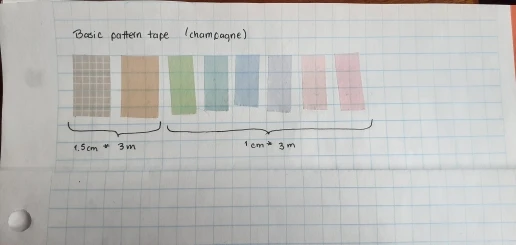 Basic pattern tape (champagne)
1.5cm * 3 m
1 cm * 3 m